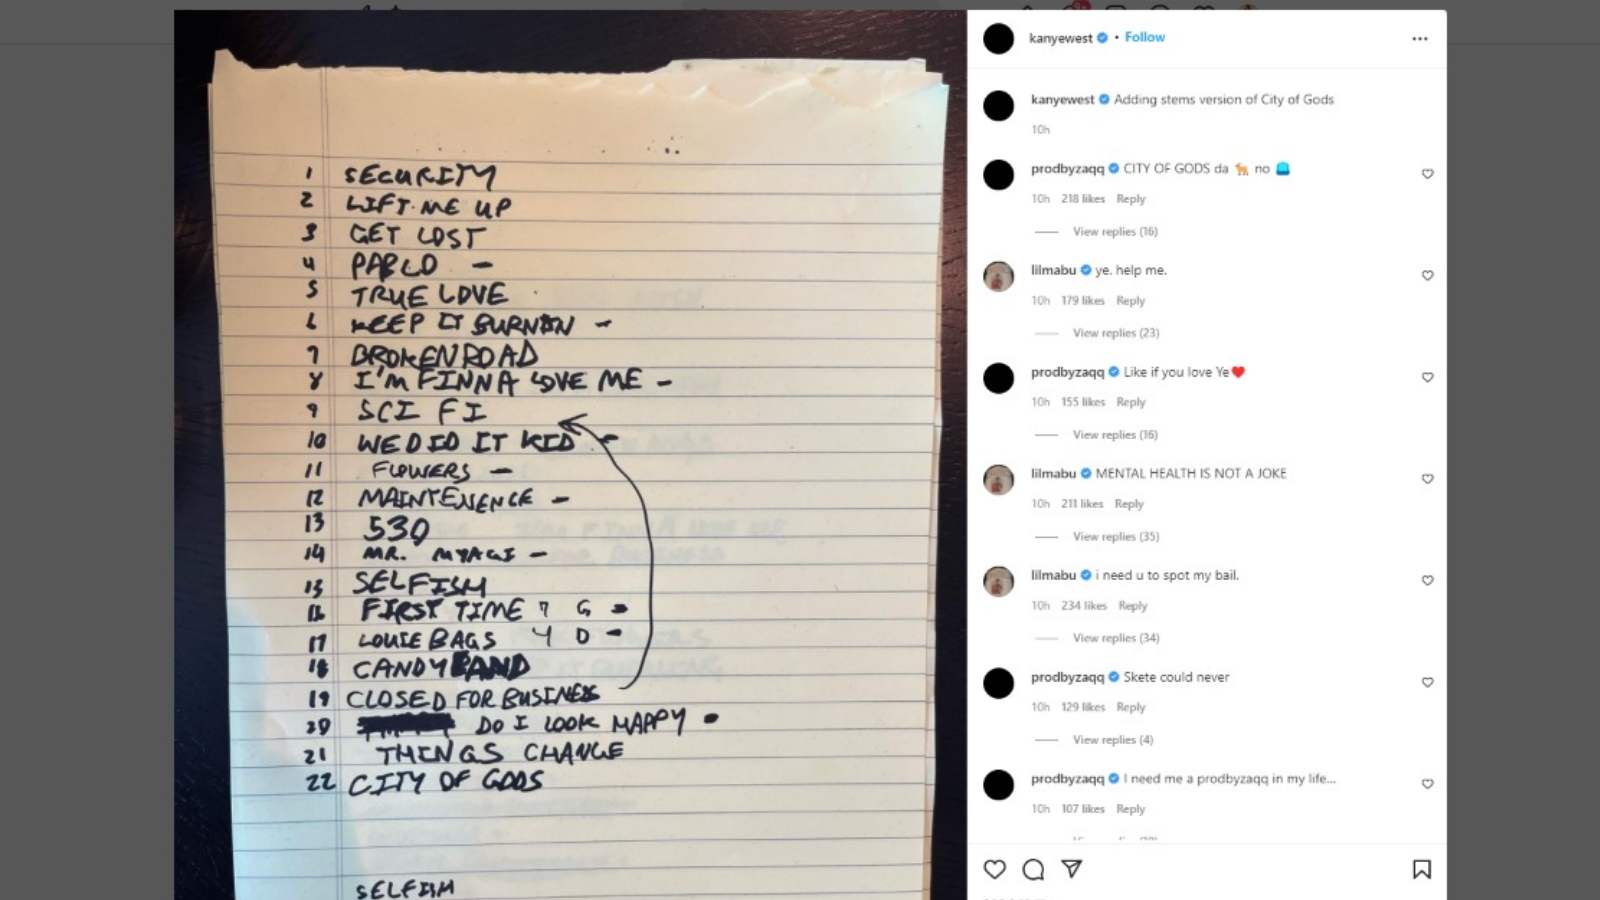 1 SECURITY
2 LIFT ME UP
3 GET LOST
4 PABLO -
5 TRUE LOVE
6 KEEP IT BURNIN -
7 BROKEN ROAD
8 I'M FINNA LOVE ME -
9 SCI FI
10 WE DID IT KID -
11 FLOWERS -
12 MAINTENENCE -
13 530
14 MR. MYAGI -
15 SELFISH
16 FIRST TIME 7 G -
17 LOUIE BAGS Y D -
18 CANDYLAND
19 CLOSED FOR BUSINESS
20 DO I LOOK HAPPY -
21 THINGS CHANGE
22 CITY OF GODS
SELFISH
kanyewest • Follow
kanyewest Adding stems version of City of Gods
10h
prodbyzaqq CITY OF GODS da 🐐 no 🧢
10h 218 likes Reply
View replies (16)
lilmabu ye. help me.
10h 179 likes Reply
View replies (23)
prodbyzaqq Like if you love Ye♥
10h 155 likes Reply
View replies (16)
lilmabu MENTAL HEALTH IS NOT A JOKE
10h 211 likes Reply
View replies (35)
lilmabu i need u to spot my bail.
10h 234 likes Reply
View replies (34)
prodbyzaqq Skete could never
10h 129 likes Reply
View replies (4)
prodbyzaqq I need me a prodbyzaqq in my life...
10h 107 likes Reply